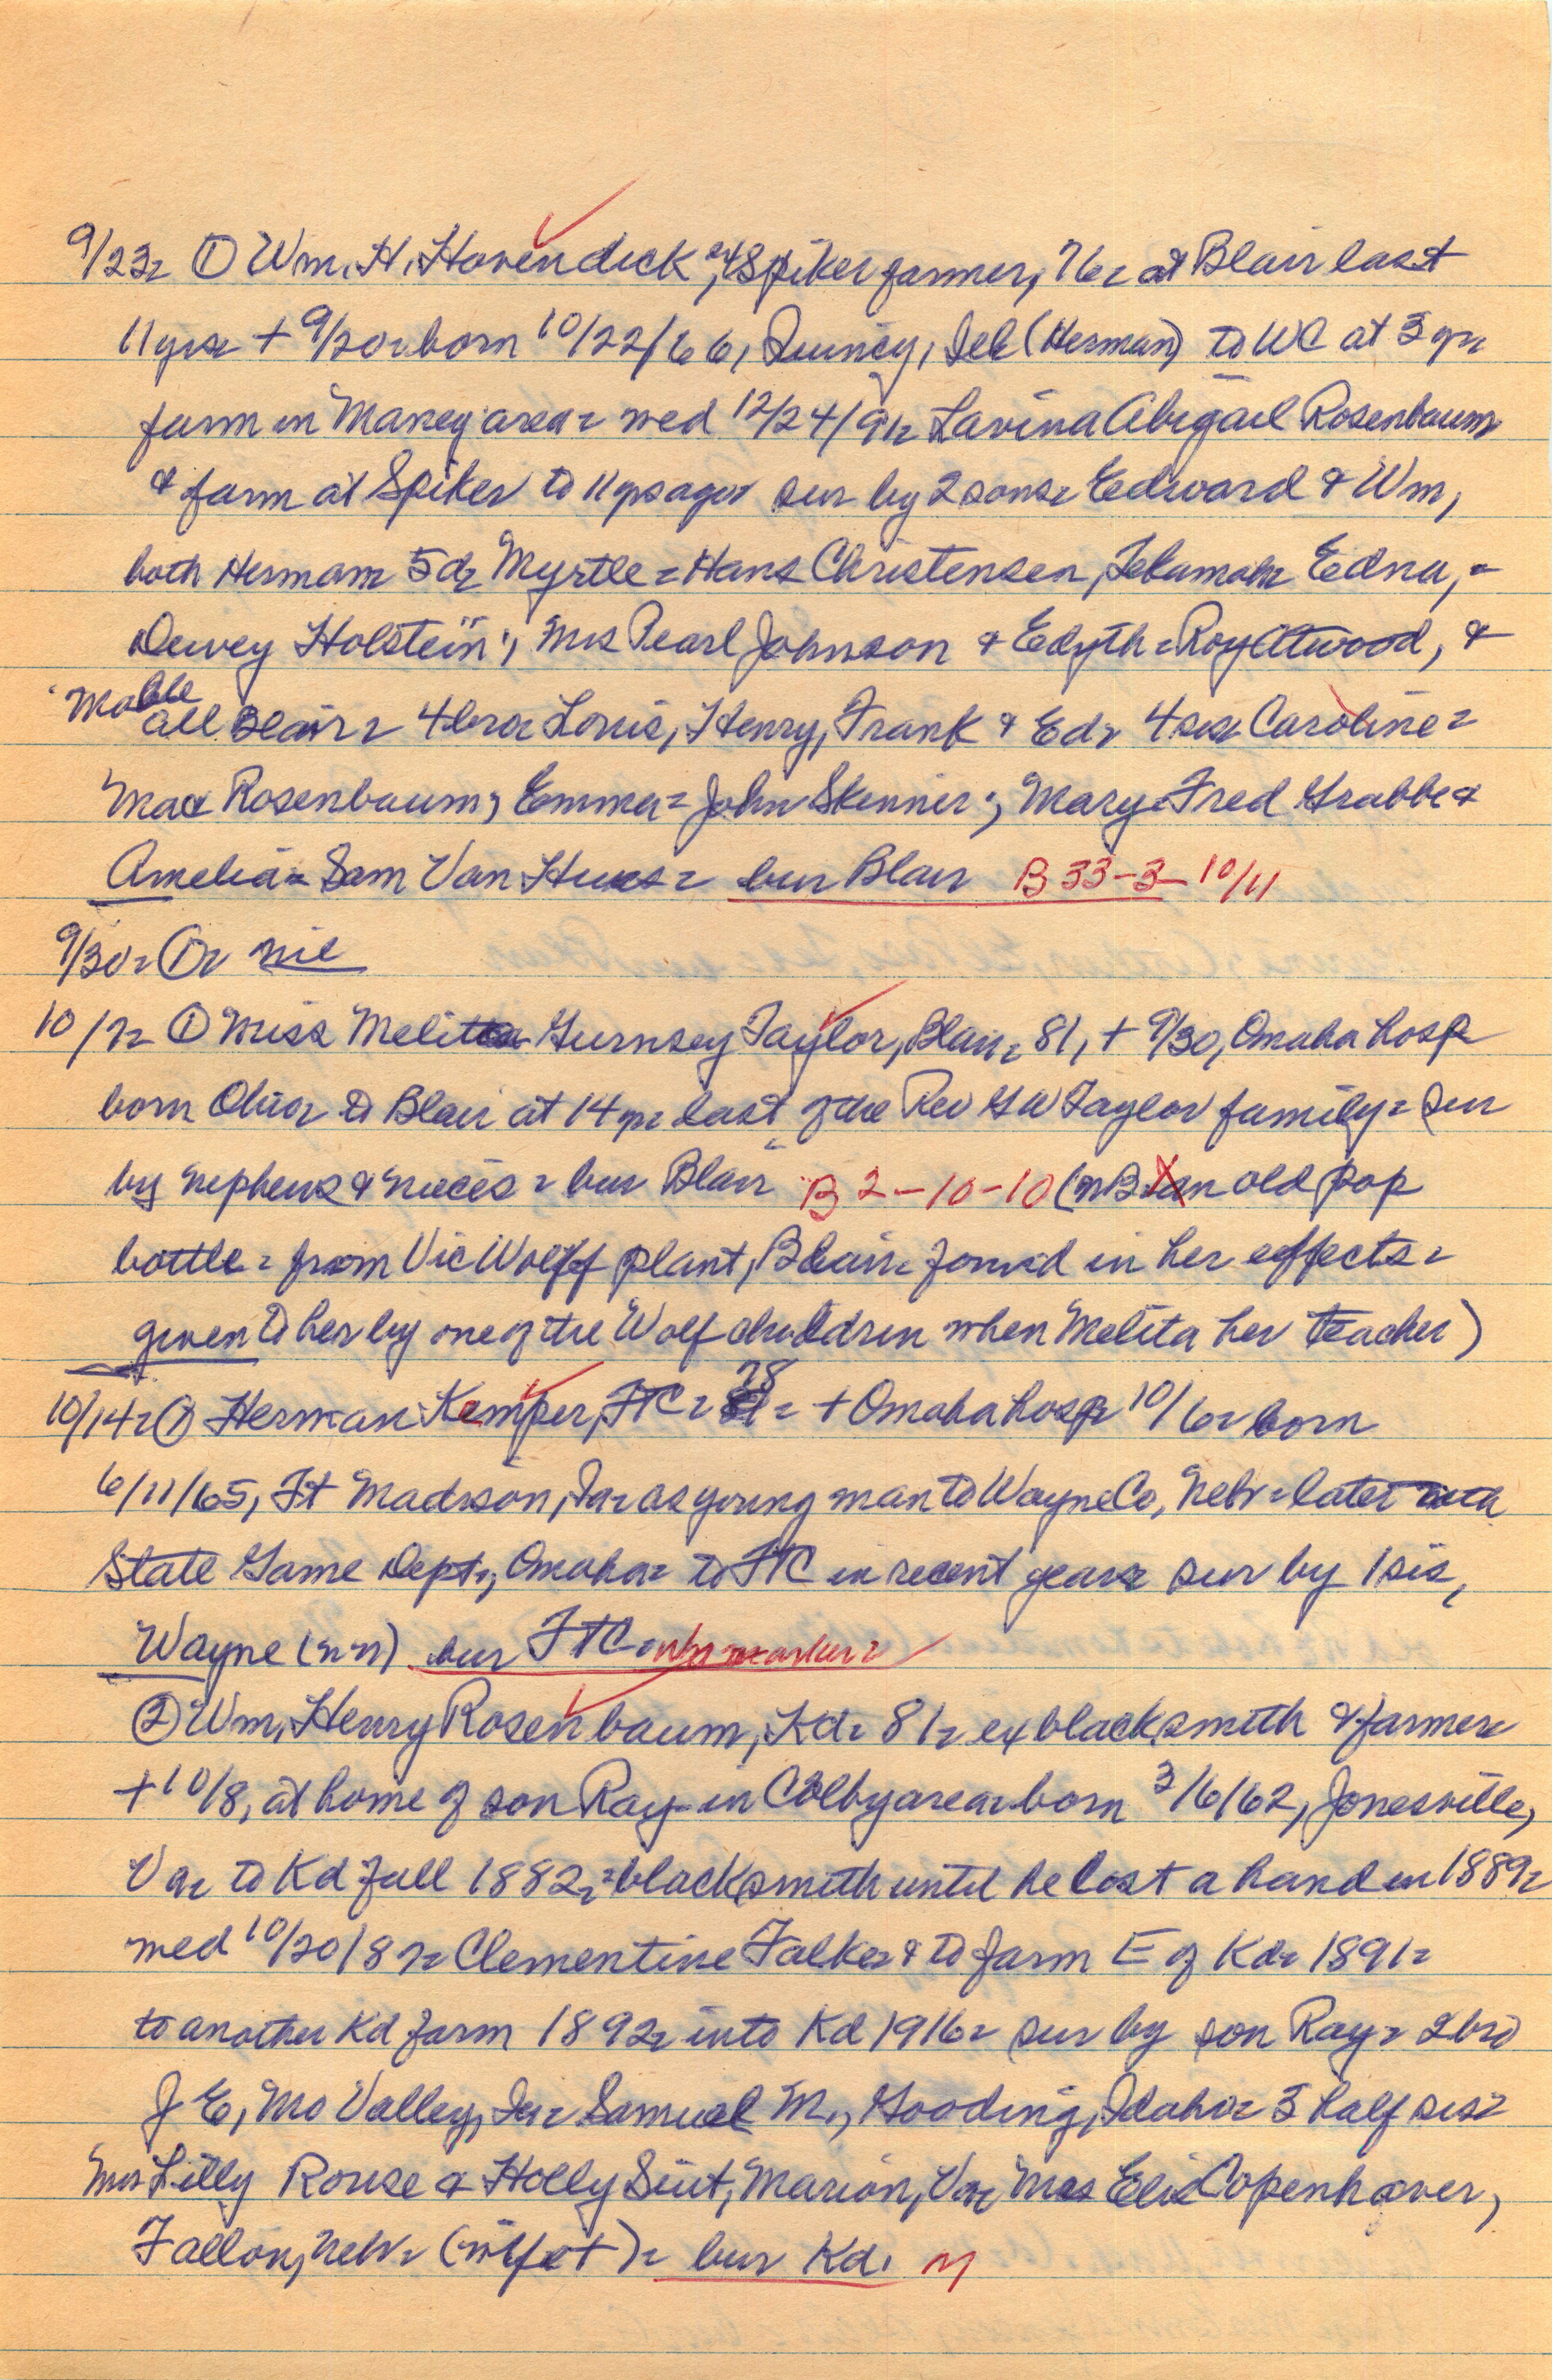 9/23= ① Wm. H. Hovendick, Spiker farmer, 76= at Blair last
11 yrs= + 9/20= born 10/22/66, Quincy, Ill (Herman) to WC at 3 yr=
farm in Maney area= med 12/24/91= Lavina Abigail Rosenbaum
& farm at Spiker to 11 yrs ago= sur by 2 sons= Edward & Wm,
both Herman= 5 d= Myrtle=Hans Christensen, Tekamah= Edna,=
Dewey Holstein; Mrs Pearl Johnson & Edyth=Roy Attwood, &
Mable
all Blair= 4 bro= Louis, Henry, Frank & Ed= 4 sis= Caroline=
Max Rosenbaum; Emma=John Skinner; Mary=Fred Grabbe &
Amelia= Sam Van Huss= bur Blair B 33-3- 10/11
9/30= ①= nil
10/7= ① Miss Melitta Gurnsey Taylor, Blair= 81, + 9/30, Omaha hosp
born Ohio= to Blair at 14 yr= last of the Rev GW Taylor family= sur
by nephews & nieces= bur Blair B 2-10-10 (nB= an old pop
bottle= from Vic Wolff plant, Blair= found in her effects=
given to her by one of the Wolf children when Melita her teacher)
10/14= ① Herman Kemper, FTC= 78= + Omaha hosp 10/6= born
6/11/65, Ft Madison, Ia= as young man to Wayne Co, Nebr= later with
State Game Dept, Omaha= to FTC in recent years= sur by 1 sis,
Wayne (nn) bur FTC= no marker=
② Wm. Henry Rosenbaum, Kd= 81= ex blacksmith & farmer=
+ 10/8, at home of son Ray= in Colby area= born 3/6/62, Jonesville,
Va= to Kd fall 1882= blacksmith until he lost a hand in 1889=
med 10/20/87= Clementine Falkes & to farm E of Kd= 1891=
to another Kd farm 1892= into Kd 1916= sur by son Ray= 2 bro
J E, Mo Valley, Ia= Samuel M., Gooding, Idaho= 3 half sis=
Mrs Lilly Rouse & Holly Siut, Marion, Va= Mrs Elis Copenhaver,
Fallon, Nebr= bur Kd. M